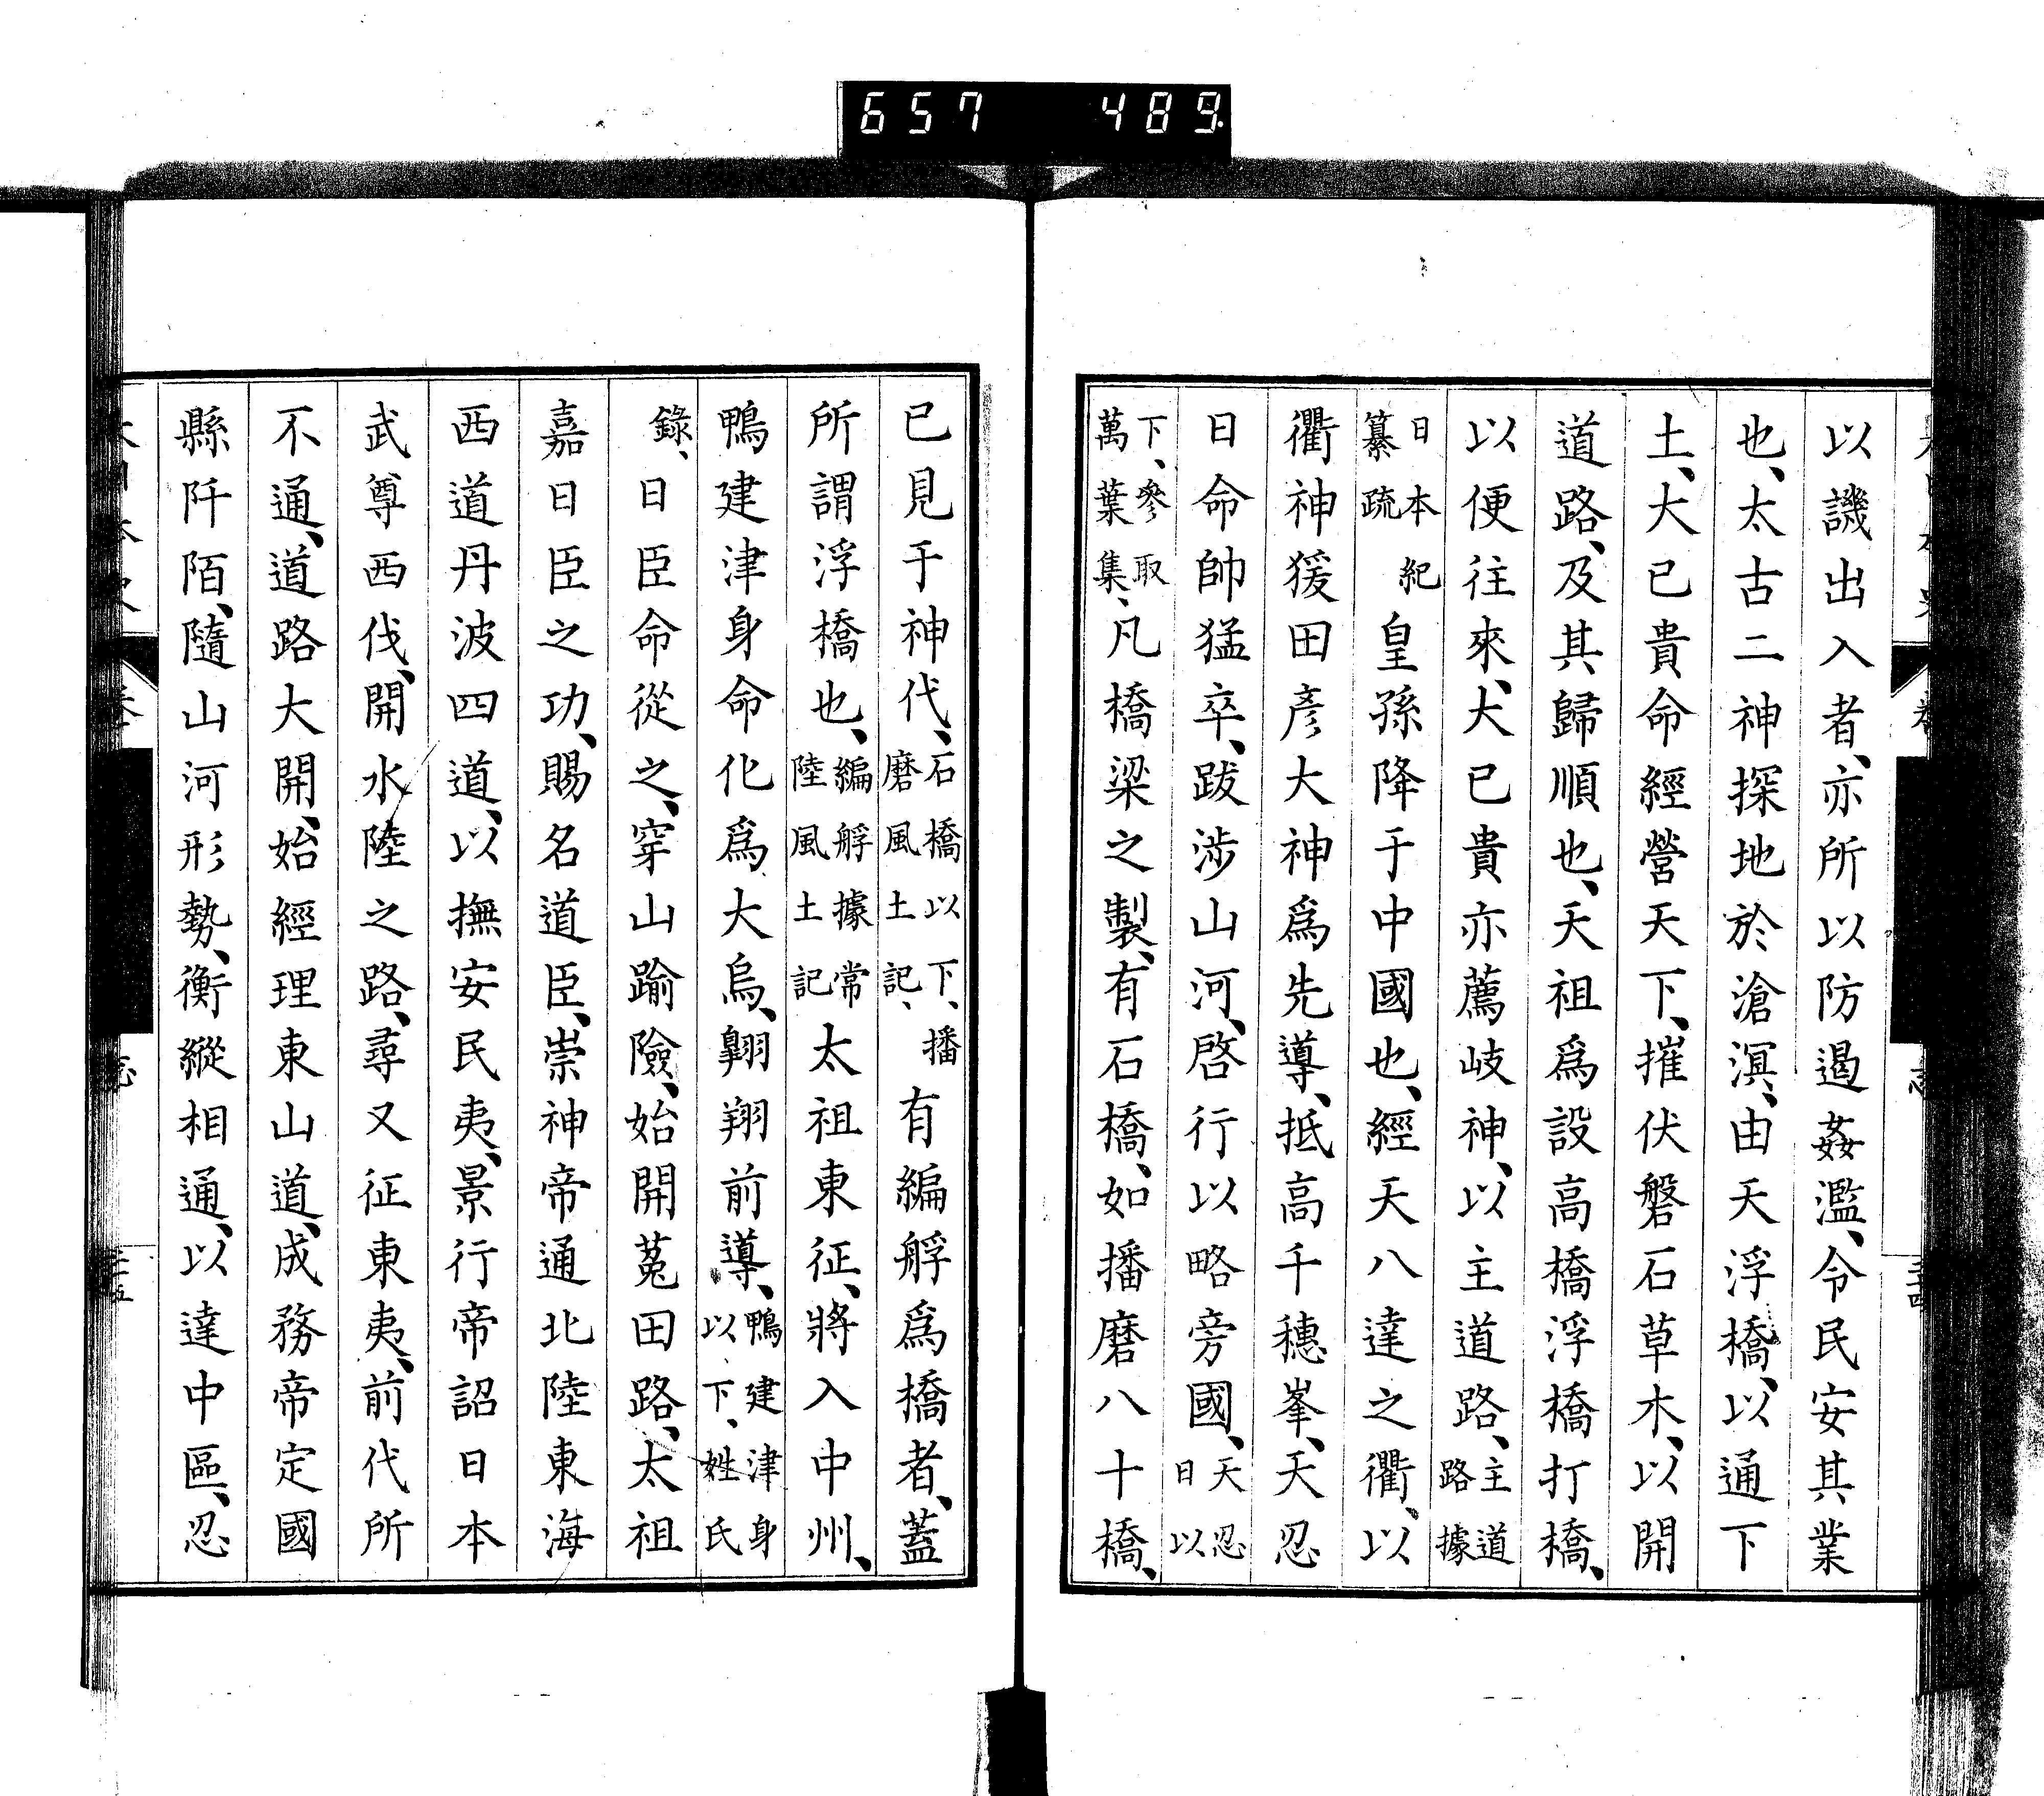 657 489
以譏出入者、亦所以防遏姦濫、令民安其業
也、太古二神探地於滄溟、由天浮橋、以通下
土、大已貴命經營天下、摧伏磐石草木、以開
道路、及其歸順也、天祖爲設高橋浮橋打橋、
以便往來、大已貴亦薦岐神、以主道路、主道路據
日本紀纂疏皇孫降于中國也、經天八達之衢、以
衢神猨田彥大神爲先導、抵高千穗峯、天忍
日命帥猛卒、跋涉山河、啓行以略旁國、天忍日以
下、參取萬葉集、凡橋梁之製、有石橋、如播磨八十橋、
已見于神代、石橋以下、播磨風土記、有編艀爲橋者、蓋
所謂浮橋也、編艀據常陸風土記太祖東征、將入中州、
鴨建津身命化爲大烏、翺翔前導、鴨建津身以下、姓氏
錄、日臣命從之、穿山踰險、始開菟田路、太祖
嘉日臣之功、賜名道臣、崇神帝通北陸東海
西道丹波四道、以撫安民夷、景行帝詔日本
武尊西伐、開水陸之路、尋又征東夷、前代所
不通、道路大開、始經理東山道、成務帝定國
縣阡陌、隨山河形勢、衡縱相通、以達中區、忍